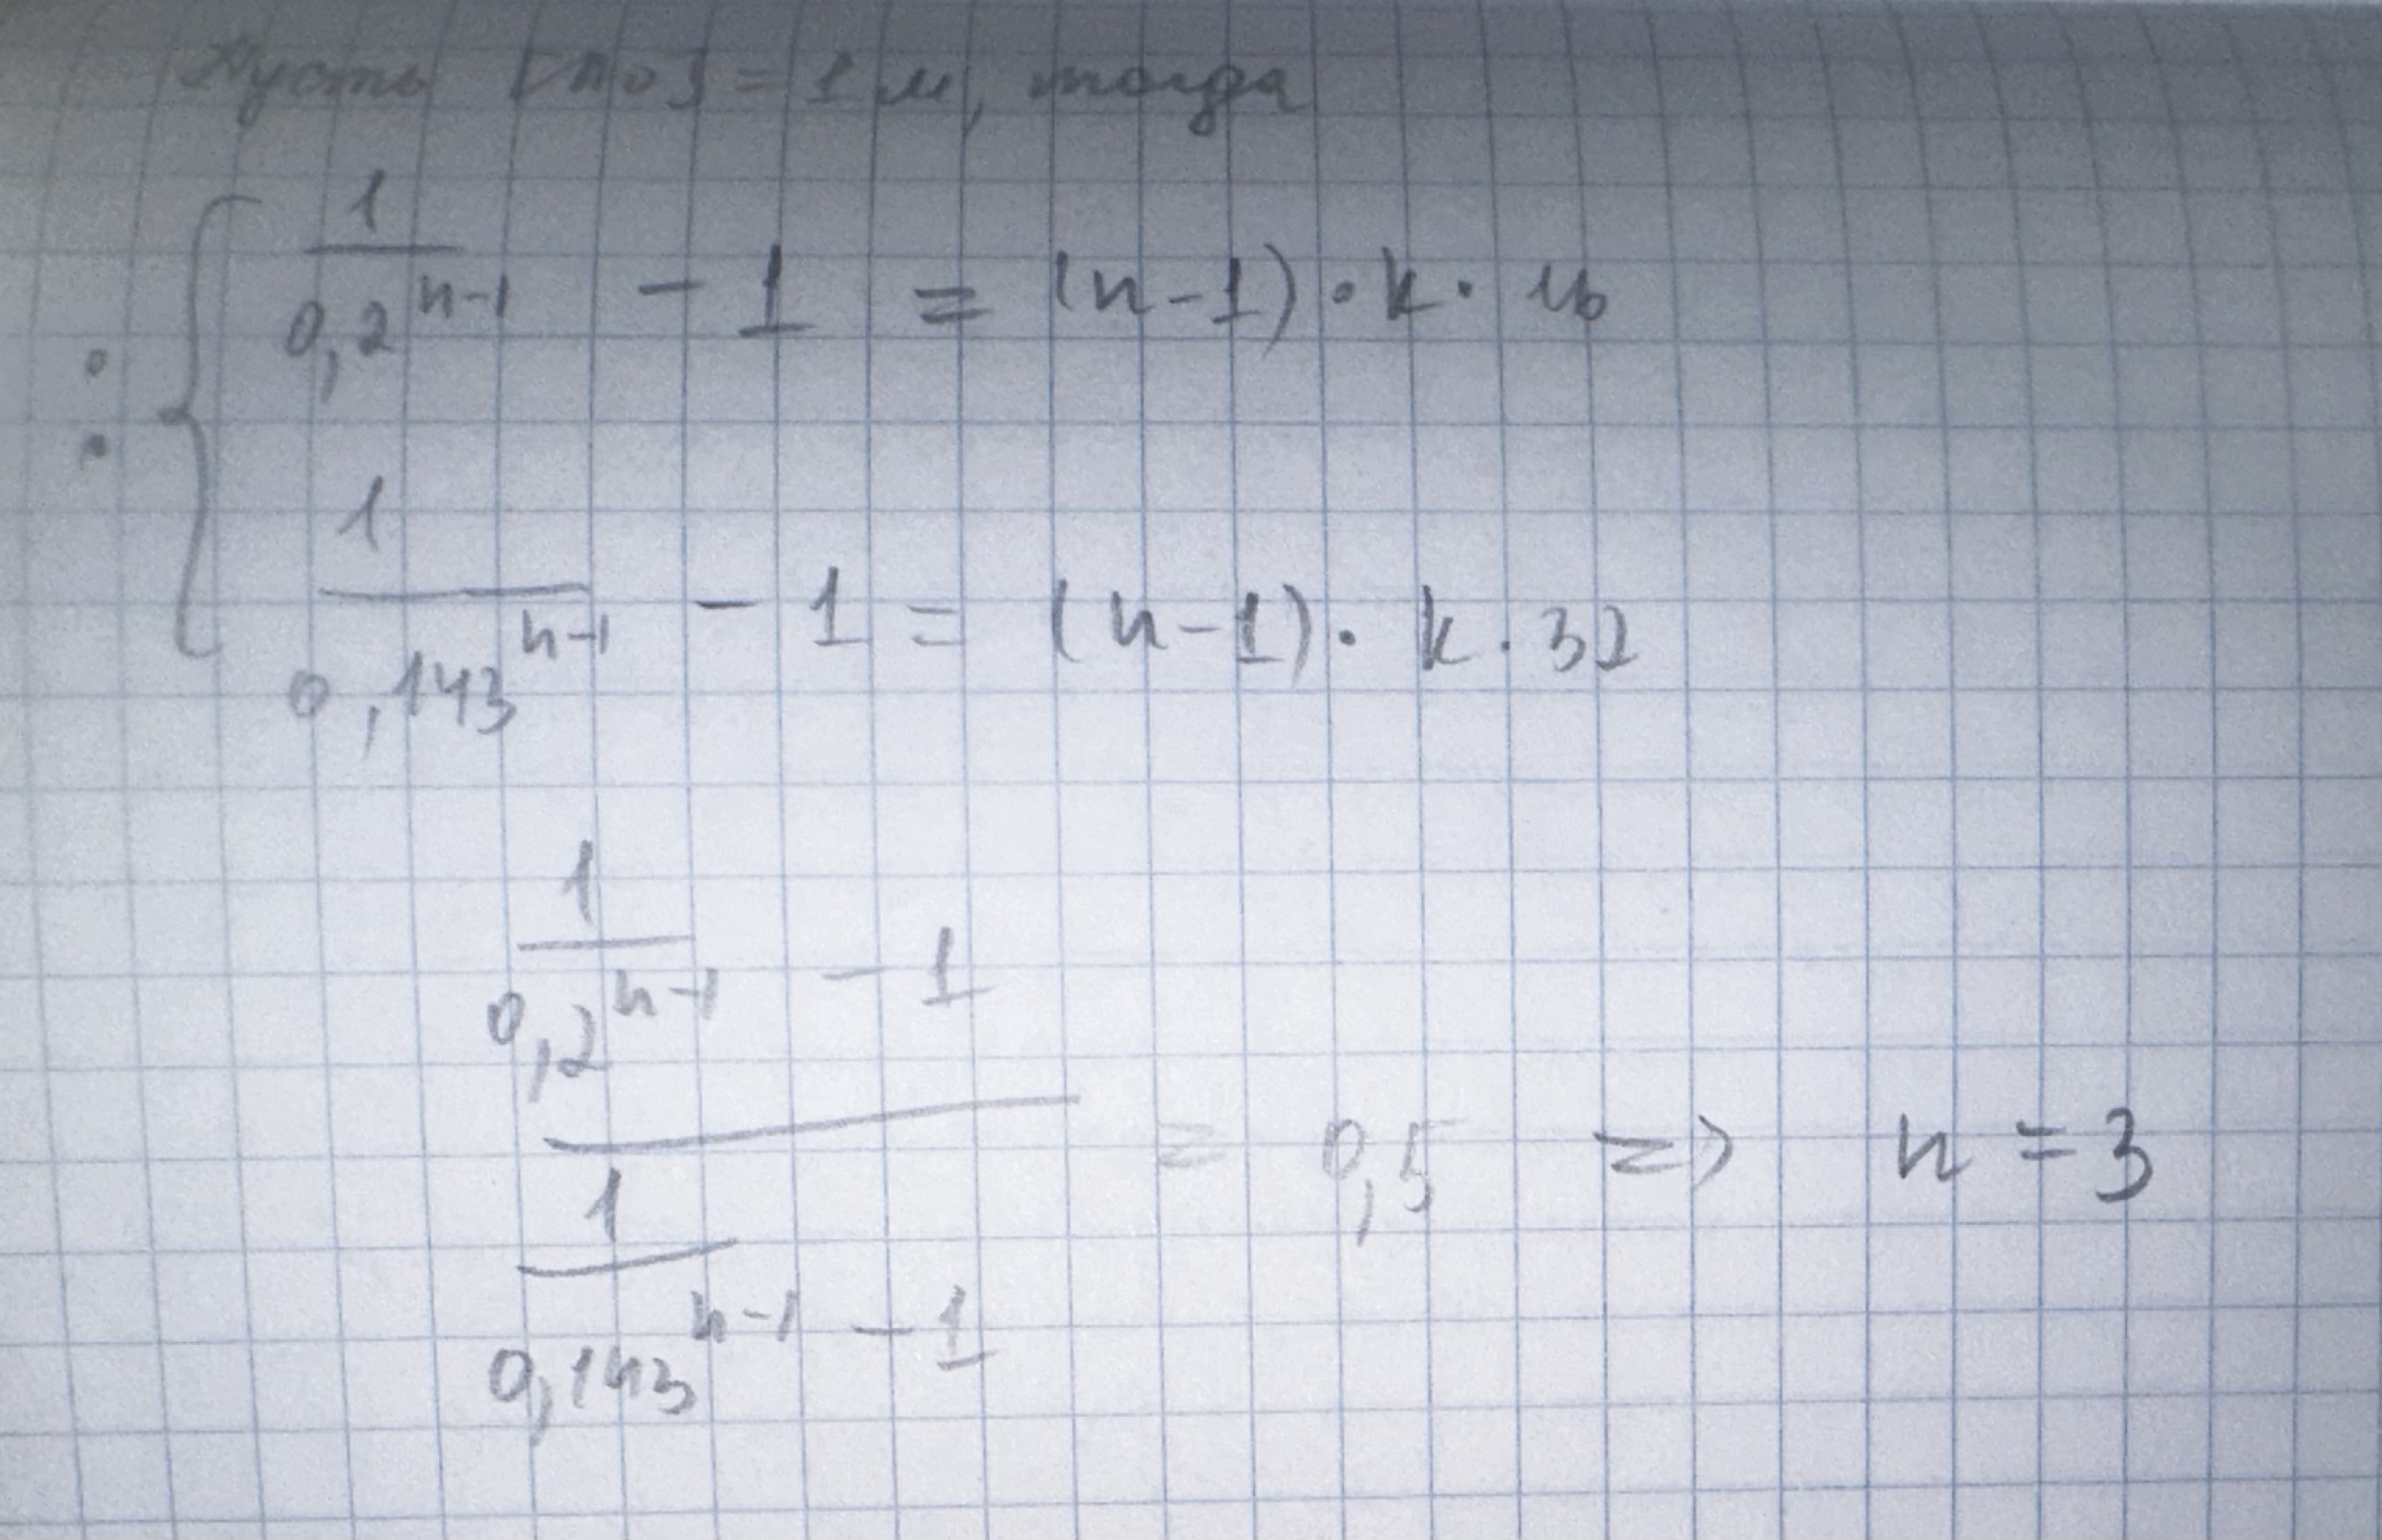 Пусть [no] = 1 м, тогда
1/0,2^(n-1) - 1 = (n-1) · k · 16
1/0,143^(n-1) - 1 = (n-1) · k · 32
(1/0,2^(n-1) - 1)/(1/0,143^(n-1) - 1) = 0,5 => n = 3